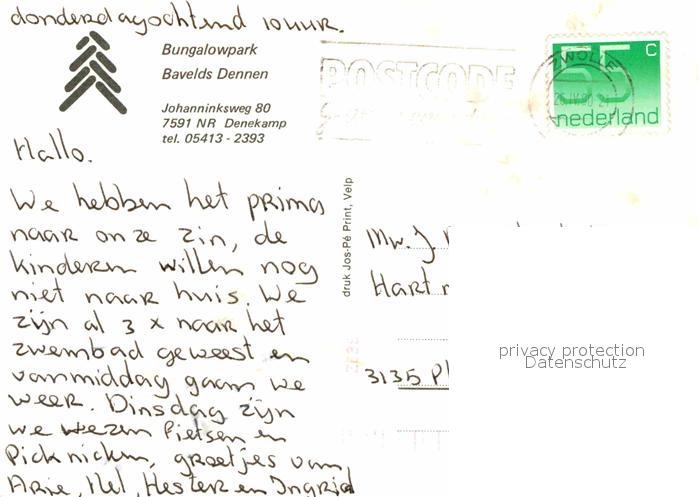 donderdagochtend 10 uur.
Bungalowpark
Bavelds Dennen
Johanninksweg 80
7591 NR Denekamp
tel. 05413 - 2393
POSTCODE
ZWOLLE
55 c
nederland
Hallo.
We hebben het prima
naar onze zin, de
kinderen willen nog
niet naar huis. We
zijn al 3 x naar het
zwembad geweest en
vanmiddag gaan we
weer. Dinsdag zijn
we wezen fietsen en
picknicken, groetjes van
Arie, Nel, Hester en Ingrid
druk Jos-Pé Print, Velp
Mw. J.
Hart
3135
privacy protection
Datenschutz